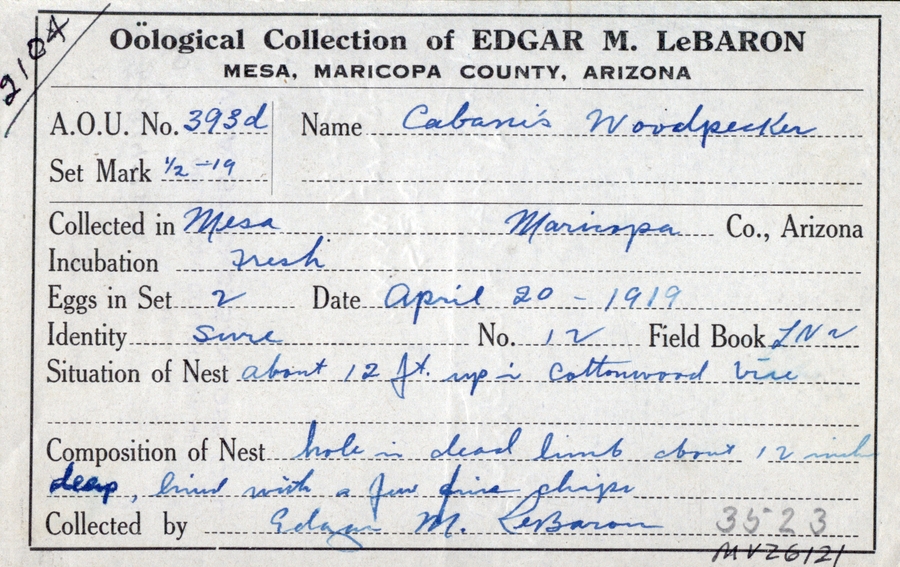 2104
Oölogical Collection of EDGAR M. LeBARON
MESA, MARICOPA COUNTY, ARIZONA
A.O.U. No. 393d Name Cabani's Woodpecker
Set Mark 1/2 -19
Collected in Mesa Maricopa Co., Arizona
Incubation Fresh
Eggs in Set 2 Date April 20 - 1919
Identity Sure No. 12 Field Book
Situation of Nest about 12 ft. up in Cottonwood
Composition of Nest hole in dead limb about 12 inch
deep, lined with a few fine chips
Collected by Edgar M. LeBaron 3523
MVZ6121